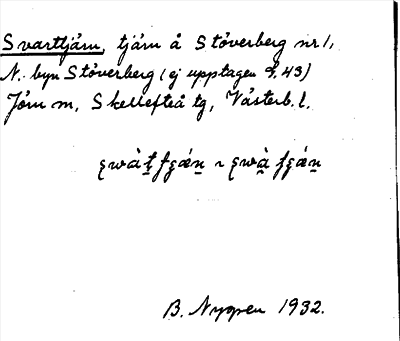 Svarttjärn, tjärn å Stöverberg nr 1,
N. byn Stöverberg (ej upptagen J. 43)
Jörn m, Skellefteå tg, Västerb. l.
B. Nygren 1932.